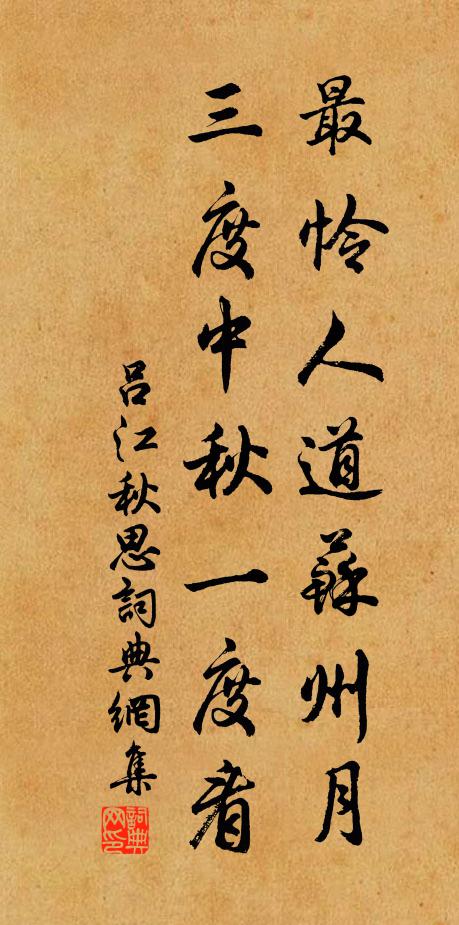 最怜人道蘇州月
三度中秋一度看
呂江秋思詞典網集
詞典
网印